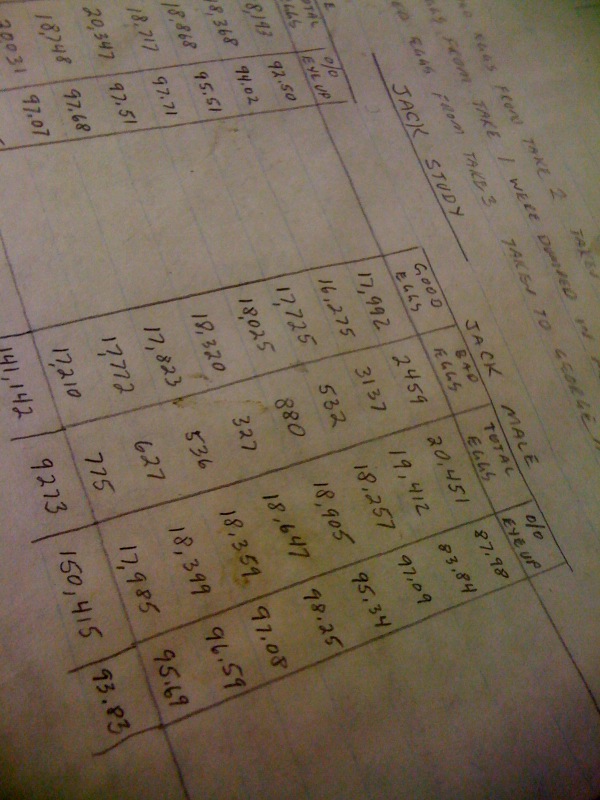 EGGS FROM TAKE 2 TAKEN
FROM TAKE 1 WERE DUMPED IN
ED EGGS FROM TAKE 3 TAKEN TO GEORGE
JACK STUDY
EGGS O/O EYE UP
8,193 92.50
8,368 94.02
18,868 95.51
18,717 97.71
20,347 97.51
18,748 97.68
20031 97.07
JACK MALE
GOOD EGGS BAD EGGS TOTAL EGGS O/O EYE UP
17,992 2459 20,451 87.98
16,275 3137 19,412 83.84
17,725 532 18,257 97.09
18,025 880 18,905 95.34
18,320 327 18,647 98.25
17,823 536 18,359 97.08
17,772 627 18,399 96.59
17,210 775 17,985 95.69
141,142 9273 150,415 93.83